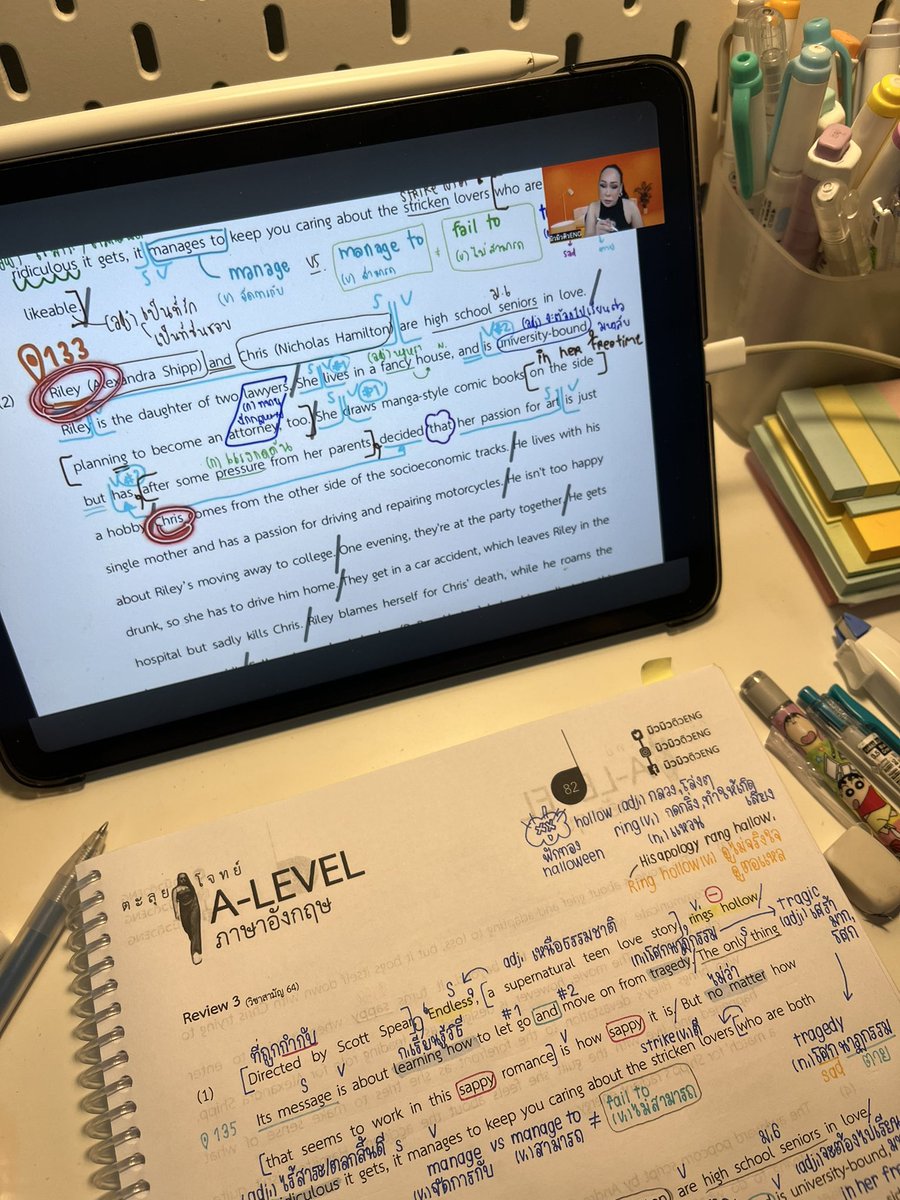 strike
ridiculous it gets, it manages to keep you caring about the stricken lovers who are
manage vs. manage to ≠ fail to
(v) จัดการกับ (v) สามารถ (v) ไม่สามารถ
likeable.
(adj) เป็นที่รัก
เป็นที่ชื่นชอบ
133
S V ม.6
(2) Riley (Alexandra Shipp) and Chris (Nicholas Hamilton) are high school seniors in love.
Riley is the daughter of two lawyers. She lives in a fancy house, and is university-bound,
in her freetime
planning to become an attorney, too. She draws manga-style comic books on the side
(n) แรงกดดัน
but has, after some pressure from her parents, decided that her passion for art is just
a hobby. Chris comes from the other side of the socioeconomic tracks. He lives with his
single mother and has a passion for driving and repairing motorcycles. He isn't too happy
about Riley's moving away to college. One evening, they're at the party together. He gets
drunk, so she has to drive him home. They get in a car accident, which leaves Riley in the
hospital but sadly kills Chris. Riley blames herself for Chris' death, while he roams the
มิวมิวติวENG
82
มิวมิวติวENG
มิวมิวติวENG
มิวมิวติวENG
hollow (adj) กลวง, โล่งๆ
ring (v.) กดกริ่ง, ทำให้เกิดเสียง
(n.) แหวน
ฟักทอง
halloween
His apology rang hallow,
Ring hollow (v) ดูไม่จริงใจ
ตะลุยโจทย์
A-LEVEL
ภาษาอังกฤษ
Review 3 (วิชาสามัญ 64)
ที่ถูกกำกับ
adj เหนือธรรมชาติ
(1) [Directed by Scott Spear], Endless, [a supernatural teen love story], rings hollow/
#1 #2
(n.) โศกนาฏกรรม
tragic
(adj) เศร้า
มาก,
โศก
Its message is about learning how to let go and move on from tragedy/ The only thing
135
[that seems to work in this sappy romance] is how sappy it is/ But no matter how
ไม่ว่า
tragedy
(n.) โศกนาฏกรรม
sad ตาย
ridiculous it gets, it manages to keep you caring about the stricken lovers [who are both
(adj) ไร้สาระ/ตลกสิ้นดี
manage vs manage to ≠ fail to
(v) จัดการกับ (v) สามารถ (v) ไม่สามารถ
ม.6
are high school seniors in love/
is university-bound,